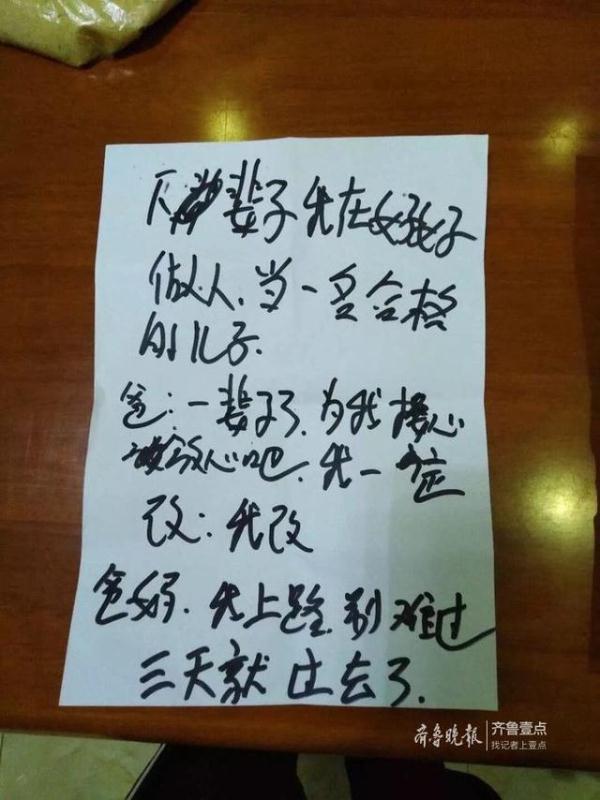 下辈子我在好好
做人.当一名合格
的儿子.
爸:一辈子了.为我操心
放心吧.我一定
改:我改
爸妈.我上路.别难过
三天就过去了.
齐鲁晚报 齐鲁壹点
找记者上壹点